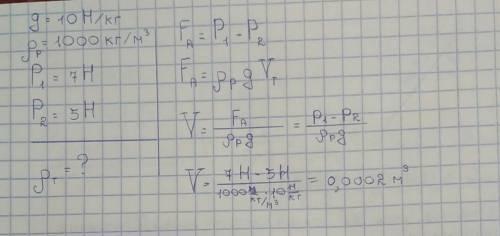 g = 10 Н/кг
ρр = 1000 кг/м³
P₁ = 7Н
P₂ = 5Н
ρт = ?
F_A = P₁ - P₂
F_A = ρр g Vт
V = F_A / ρрg = P₁-P₂ / ρрg
V = 7Н - 5Н / 1000 кг/м³ · 10 Н/кг = 0,0002 м³